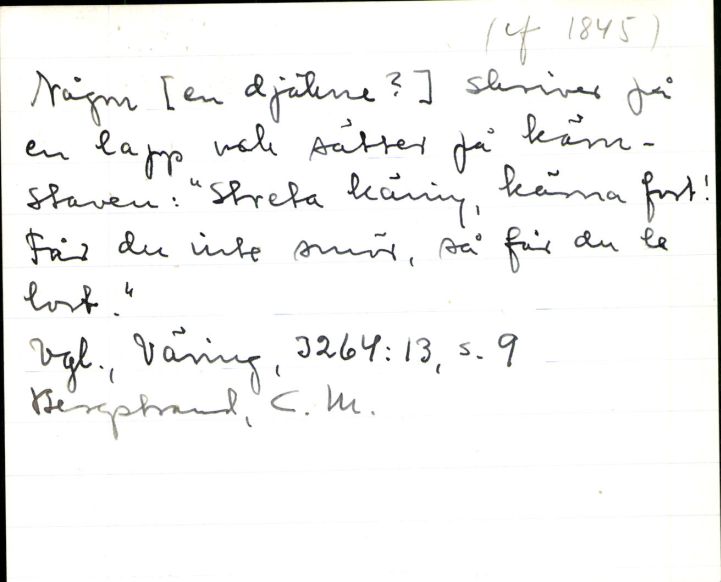 (cf 1845)
Någon [en djäkne?] skriver på
en lapp och sätter på kärn-
staven: "Streta käring, kärna fort!
Får du inte smör, så får du le
lort."
Vgl., Väring, 3264:13, s. 9
Bergstrand, C. M.